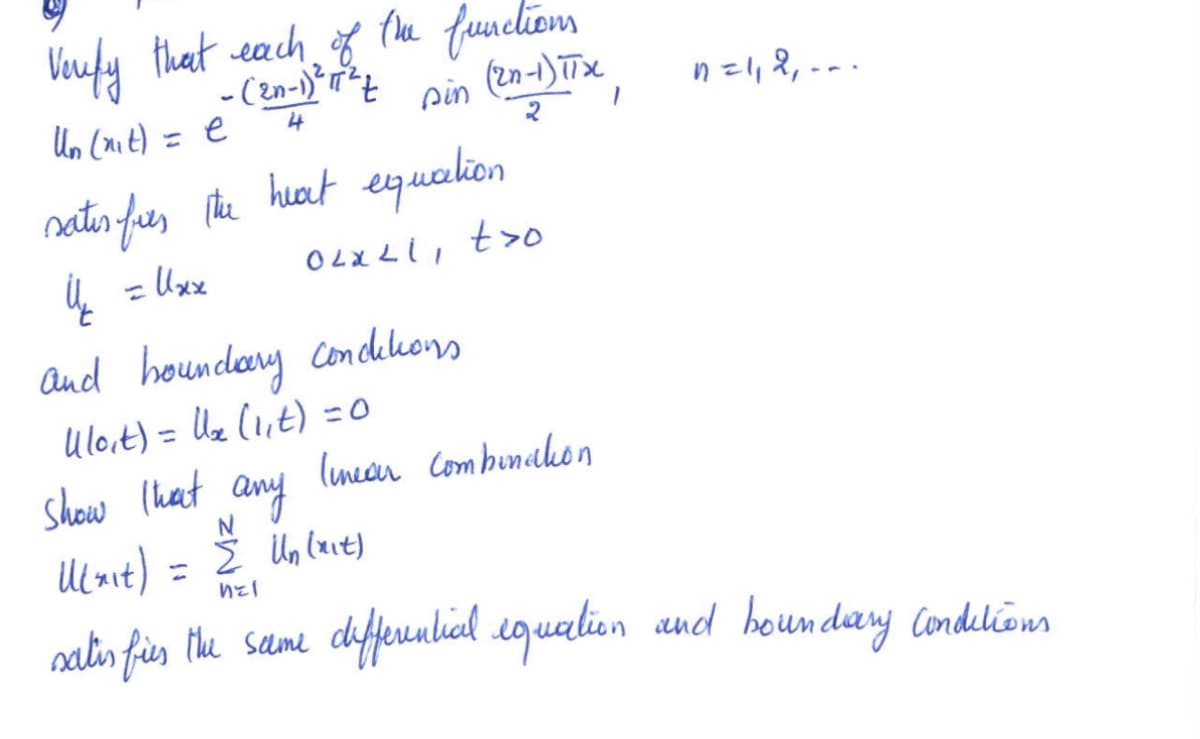 Verify that each of the functions
Un (x,t) = e^{-(2n-1)²π²t/4} sin (2n-1)πx/2, n=1, 2, ---.
satisfies the heat equation
Ut = Uxx 0<x<1, t>0
and boundary conditions
U(0,t) = Ux (1,t) =0
Show that any linear combination
U(x,t) = Σ_{n=1}^{N} Un (x,t)
satisfies the same differential equation and boundary conditions